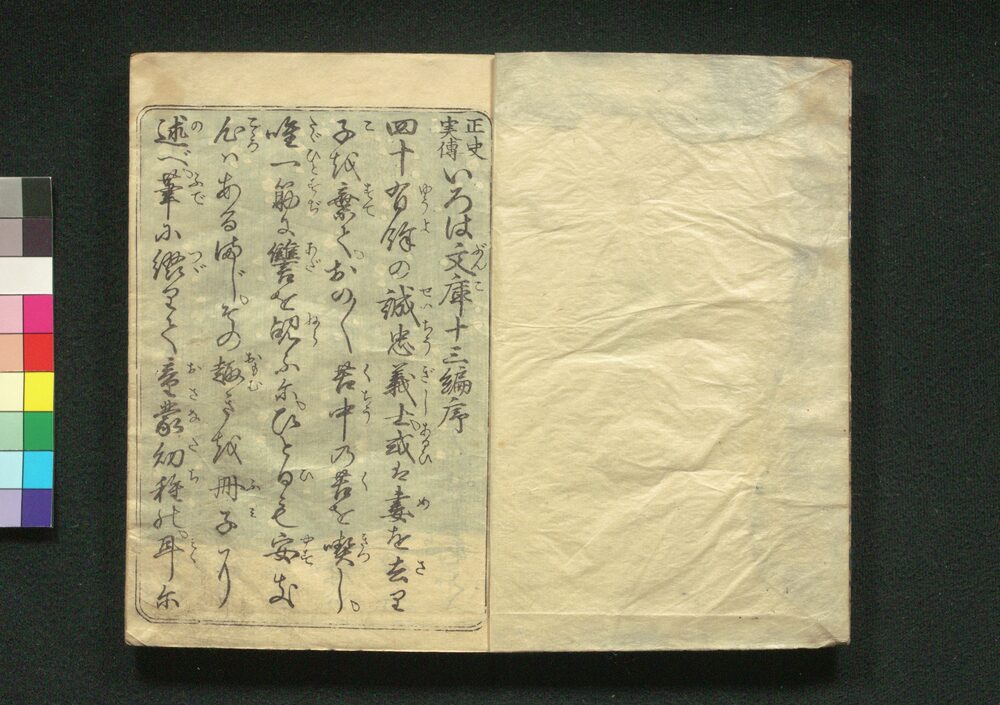 正史実傳いろは文庫十三編序
四十有餘の誠忠義士或は妻を去り
子を棄ておの〳〵苦中の苦を喫し。
唯一筋に讐を覘ふにぞひと日も安き
心はあるまじ。その趣きを冊子に
述べ筆に綴りて童蒙幼稚の耳に